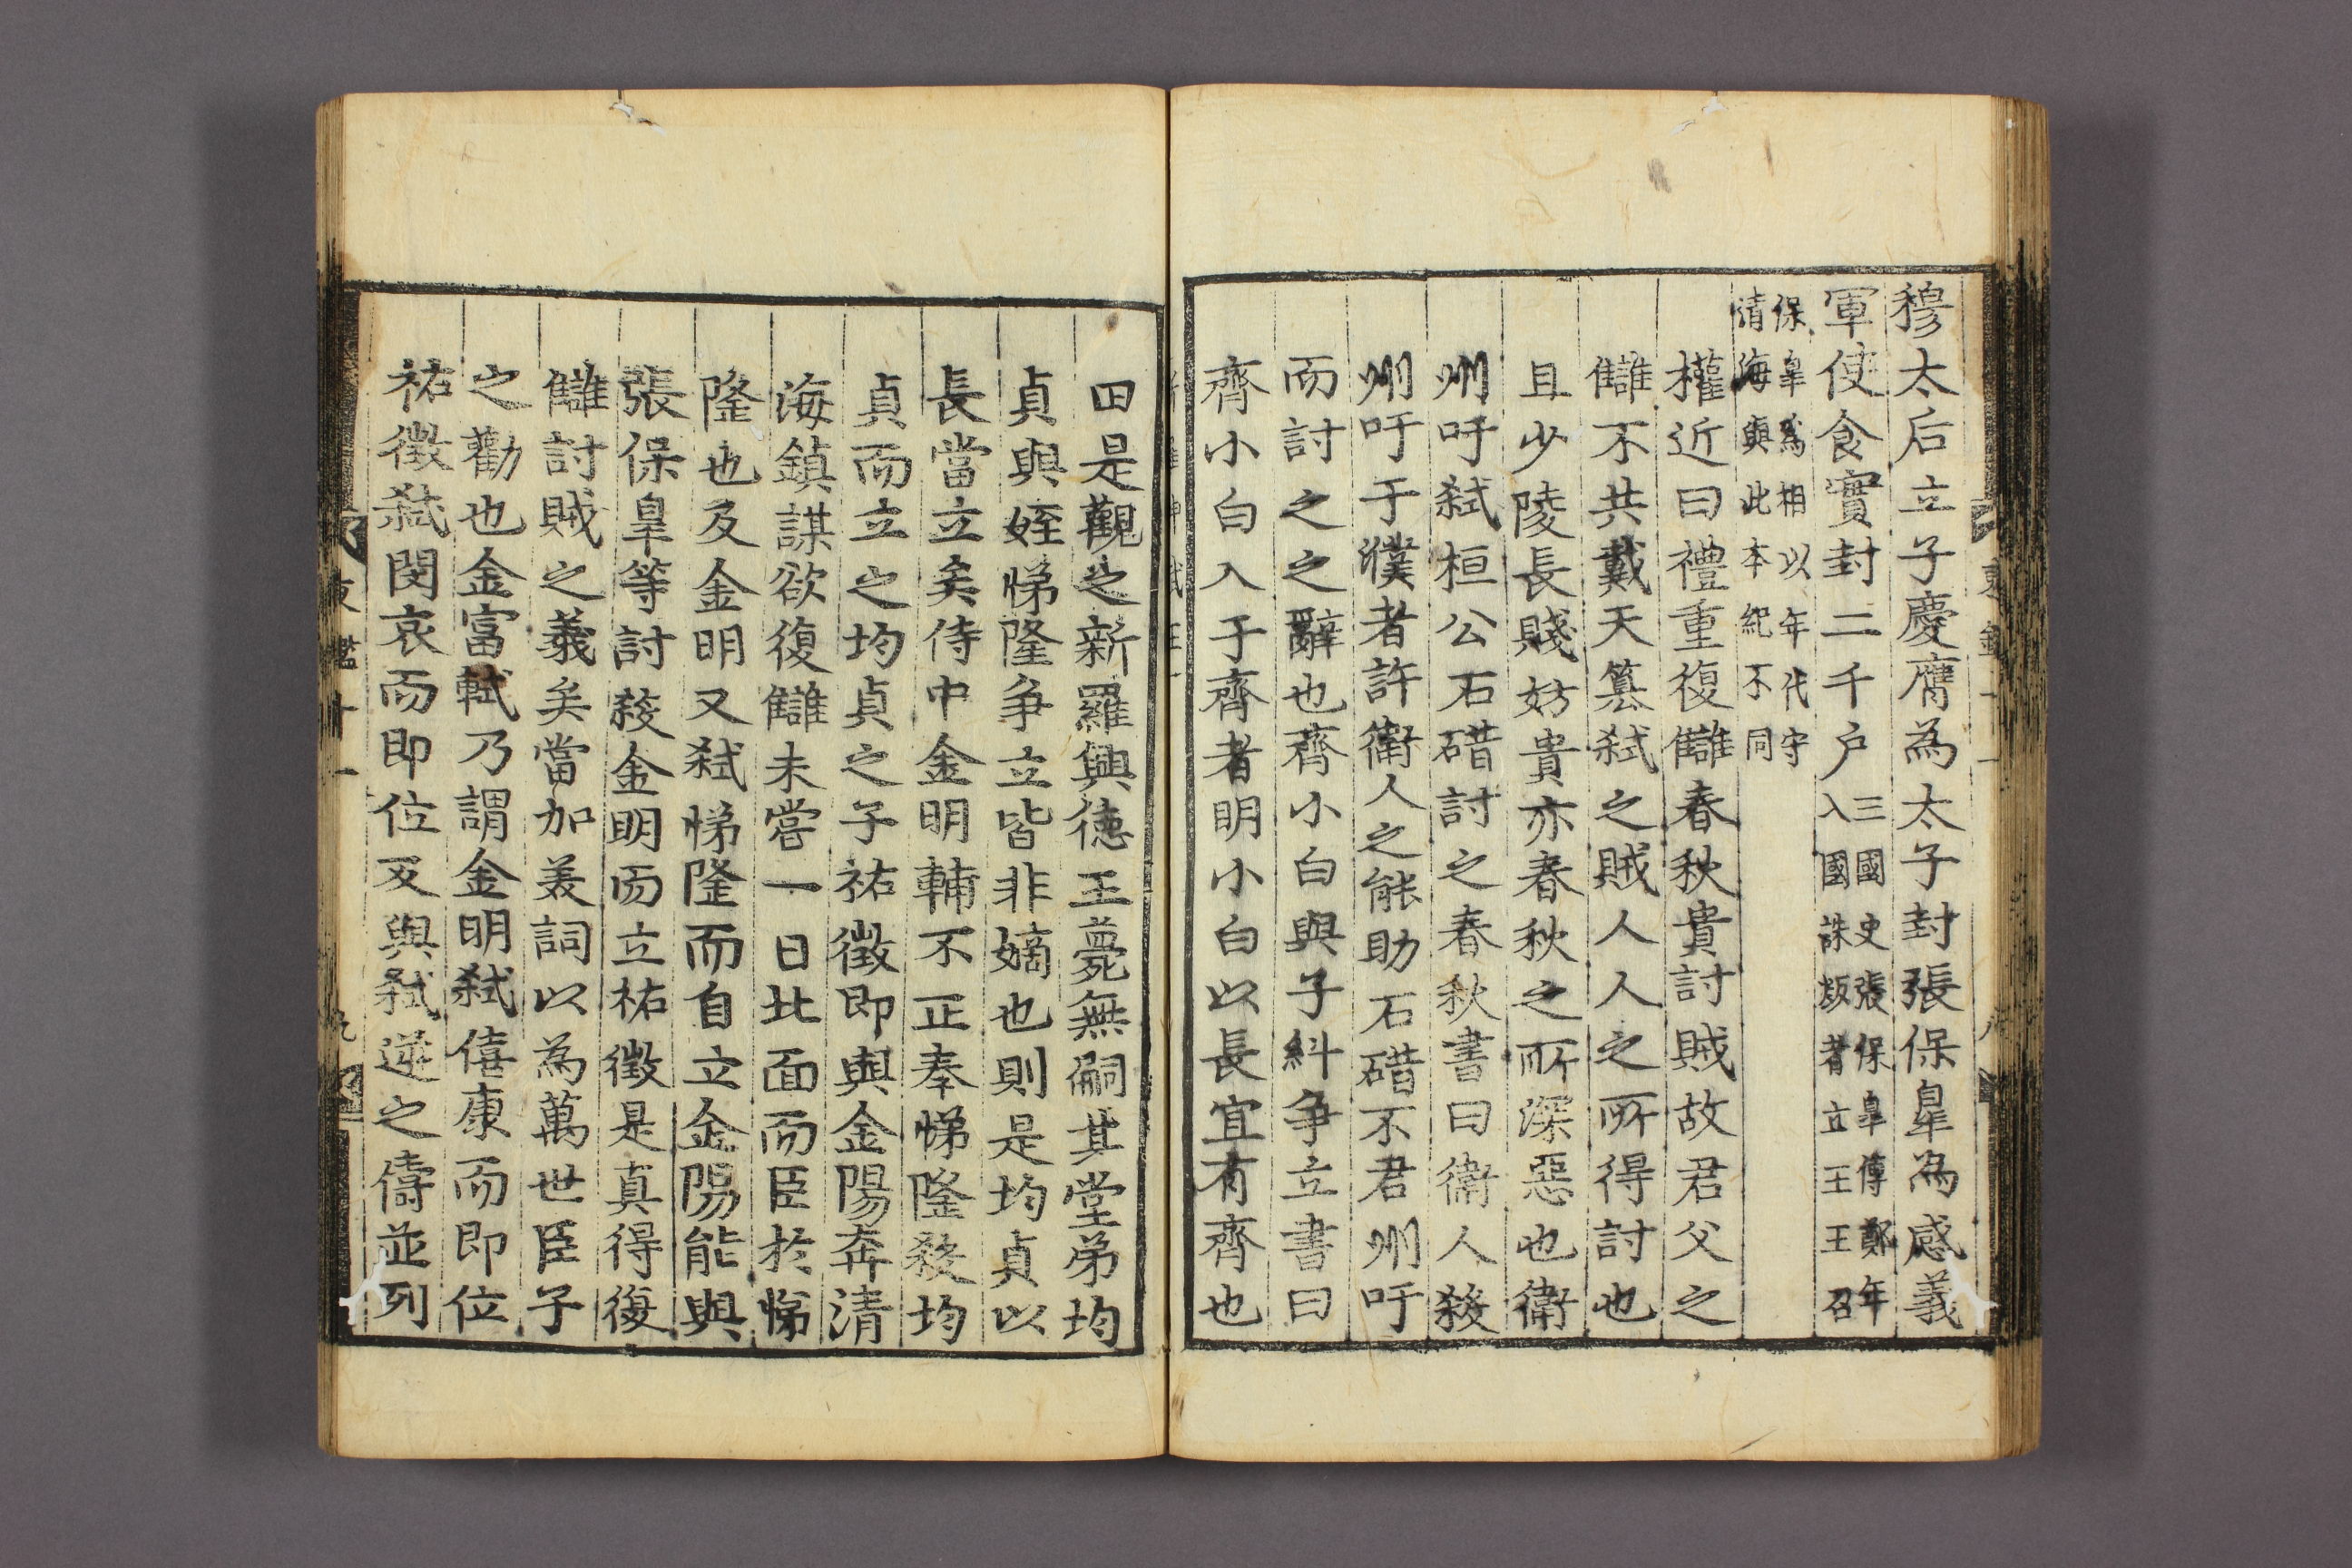 穆太后立子慶膺為太子封張保皐為感義
軍使食實封二千户三國史張保皐傳鄭年
入國誅叛者立王王召
保皐為相以年代守
清海與此本紀不同
權近曰禮重復讎春秋貴討賊故君父之
讎不共戴天簒弑之賊人人之所得討也
且少陵長賤妨貴亦春秋之所深惡也衛
州吁弑桓公石碏討之春秋書曰衛人殺
州吁于濮者許衛人之能助石碏不君州吁
而討之之辭也齊小白與子糾爭立書曰
齊小白入于齊者明小白以長宜有齊也
田是觀之新羅興德王薨無嗣其堂弟均
貞與姪悌隆爭立皆非嫡也則是均貞以
長當立矣侍中金明輔不正奉悌隆殺均
貞而立之均貞之子祐徵即與金陽奔清
海鎮謀欲復讎未嘗一日北面而臣於悌
隆也及金明又弑悌隆而自立金陽能與
張保皐等討殺金明而立祐徵是真得復
讎討賊之義矣當加美詞以為萬世臣子
之勸也金富軾乃謂金明弑僖康而即位
祐徵弑閔哀而即位及與弑逆之儔並列